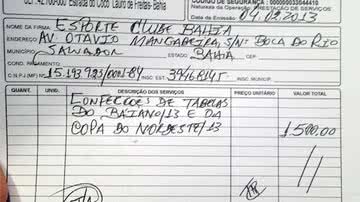 CEP. 42.700-000 Estrada do Coco Lauro de Freitas- Bahia
CÓDIGO DE SEGURANÇA:
Natureza da Operação: PRESTAÇÃO DE SERVIÇOS
Data da Emissão 04.02.2013
NOME ESPORTE CLUBE BAHIA
END. AV. OTAVIO MANGABEIRA, S/Nº BOCA DO RIO
MUNICÍPIO SALVADOR ESTADO BAHIA CEP.
COND. PAGAMENTO
C.N.P.J (MF) Nº 15.193.923/0001-84 INSC. EST. INSC. MUN.
QUANT. UNID. DESCRIÇÃO DOS SERVIÇOS PREÇO UNITÁRIO VALOR TOTAL
CONFECÇÕES DE TABELAS
DO BAIANO/13 E DA
COPA DO NORDESTE/13 1.500.00